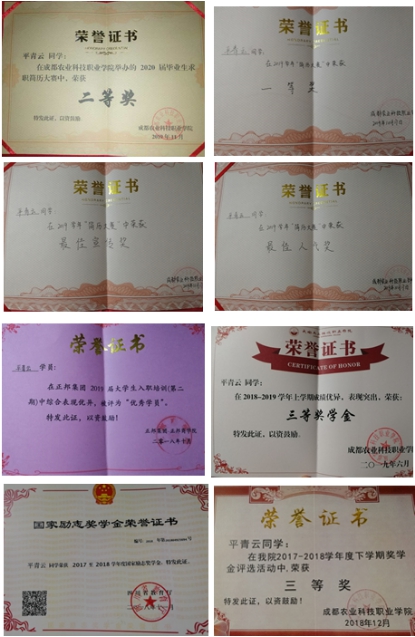 荣誉证书
平青云 同学:
在成都农业科技职业学院举办的 2020 届毕业生求
职简历大赛中，荣获
二等奖
特发此证，以资鼓励
成都农业科技职业学院
荣誉证书
平青云 同学:
在2019学年"简历大赛"中荣获
一等奖
荣誉证书
平青云 同学
在2019学年"简历大赛"中荣获
最佳宣传奖
荣誉证书
平青云 同学
在2019学年"简历大赛"中荣获
最佳人气奖
荣誉证书
平青云 学员:
在正邦集团 2018 届大学生入职培训(第二
期)中综合表现优异，被评为"优秀学员"。
特发此证，以资鼓励!
二〇一八年十月
荣誉证书
CERTIFICATE OF HONOR
平青云 同学:
在 2018-2019 学年上学期成绩优异，表现突出，荣获:
三等奖学金
特发此证，以资鼓励。
成都农业科技职业学
二〇一九年六月
国家励志奖学金荣誉证书
平青云 同学荣获 2017 至 2018 学年度国家励志奖学金，特发此证。
荣誉证书
平青云同学:
在我院2017-2018学年度下学期奖学
金评选活动中,荣获
三等奖
特发此证，以资鼓励!
成都农业科技职业学院
2018年12月